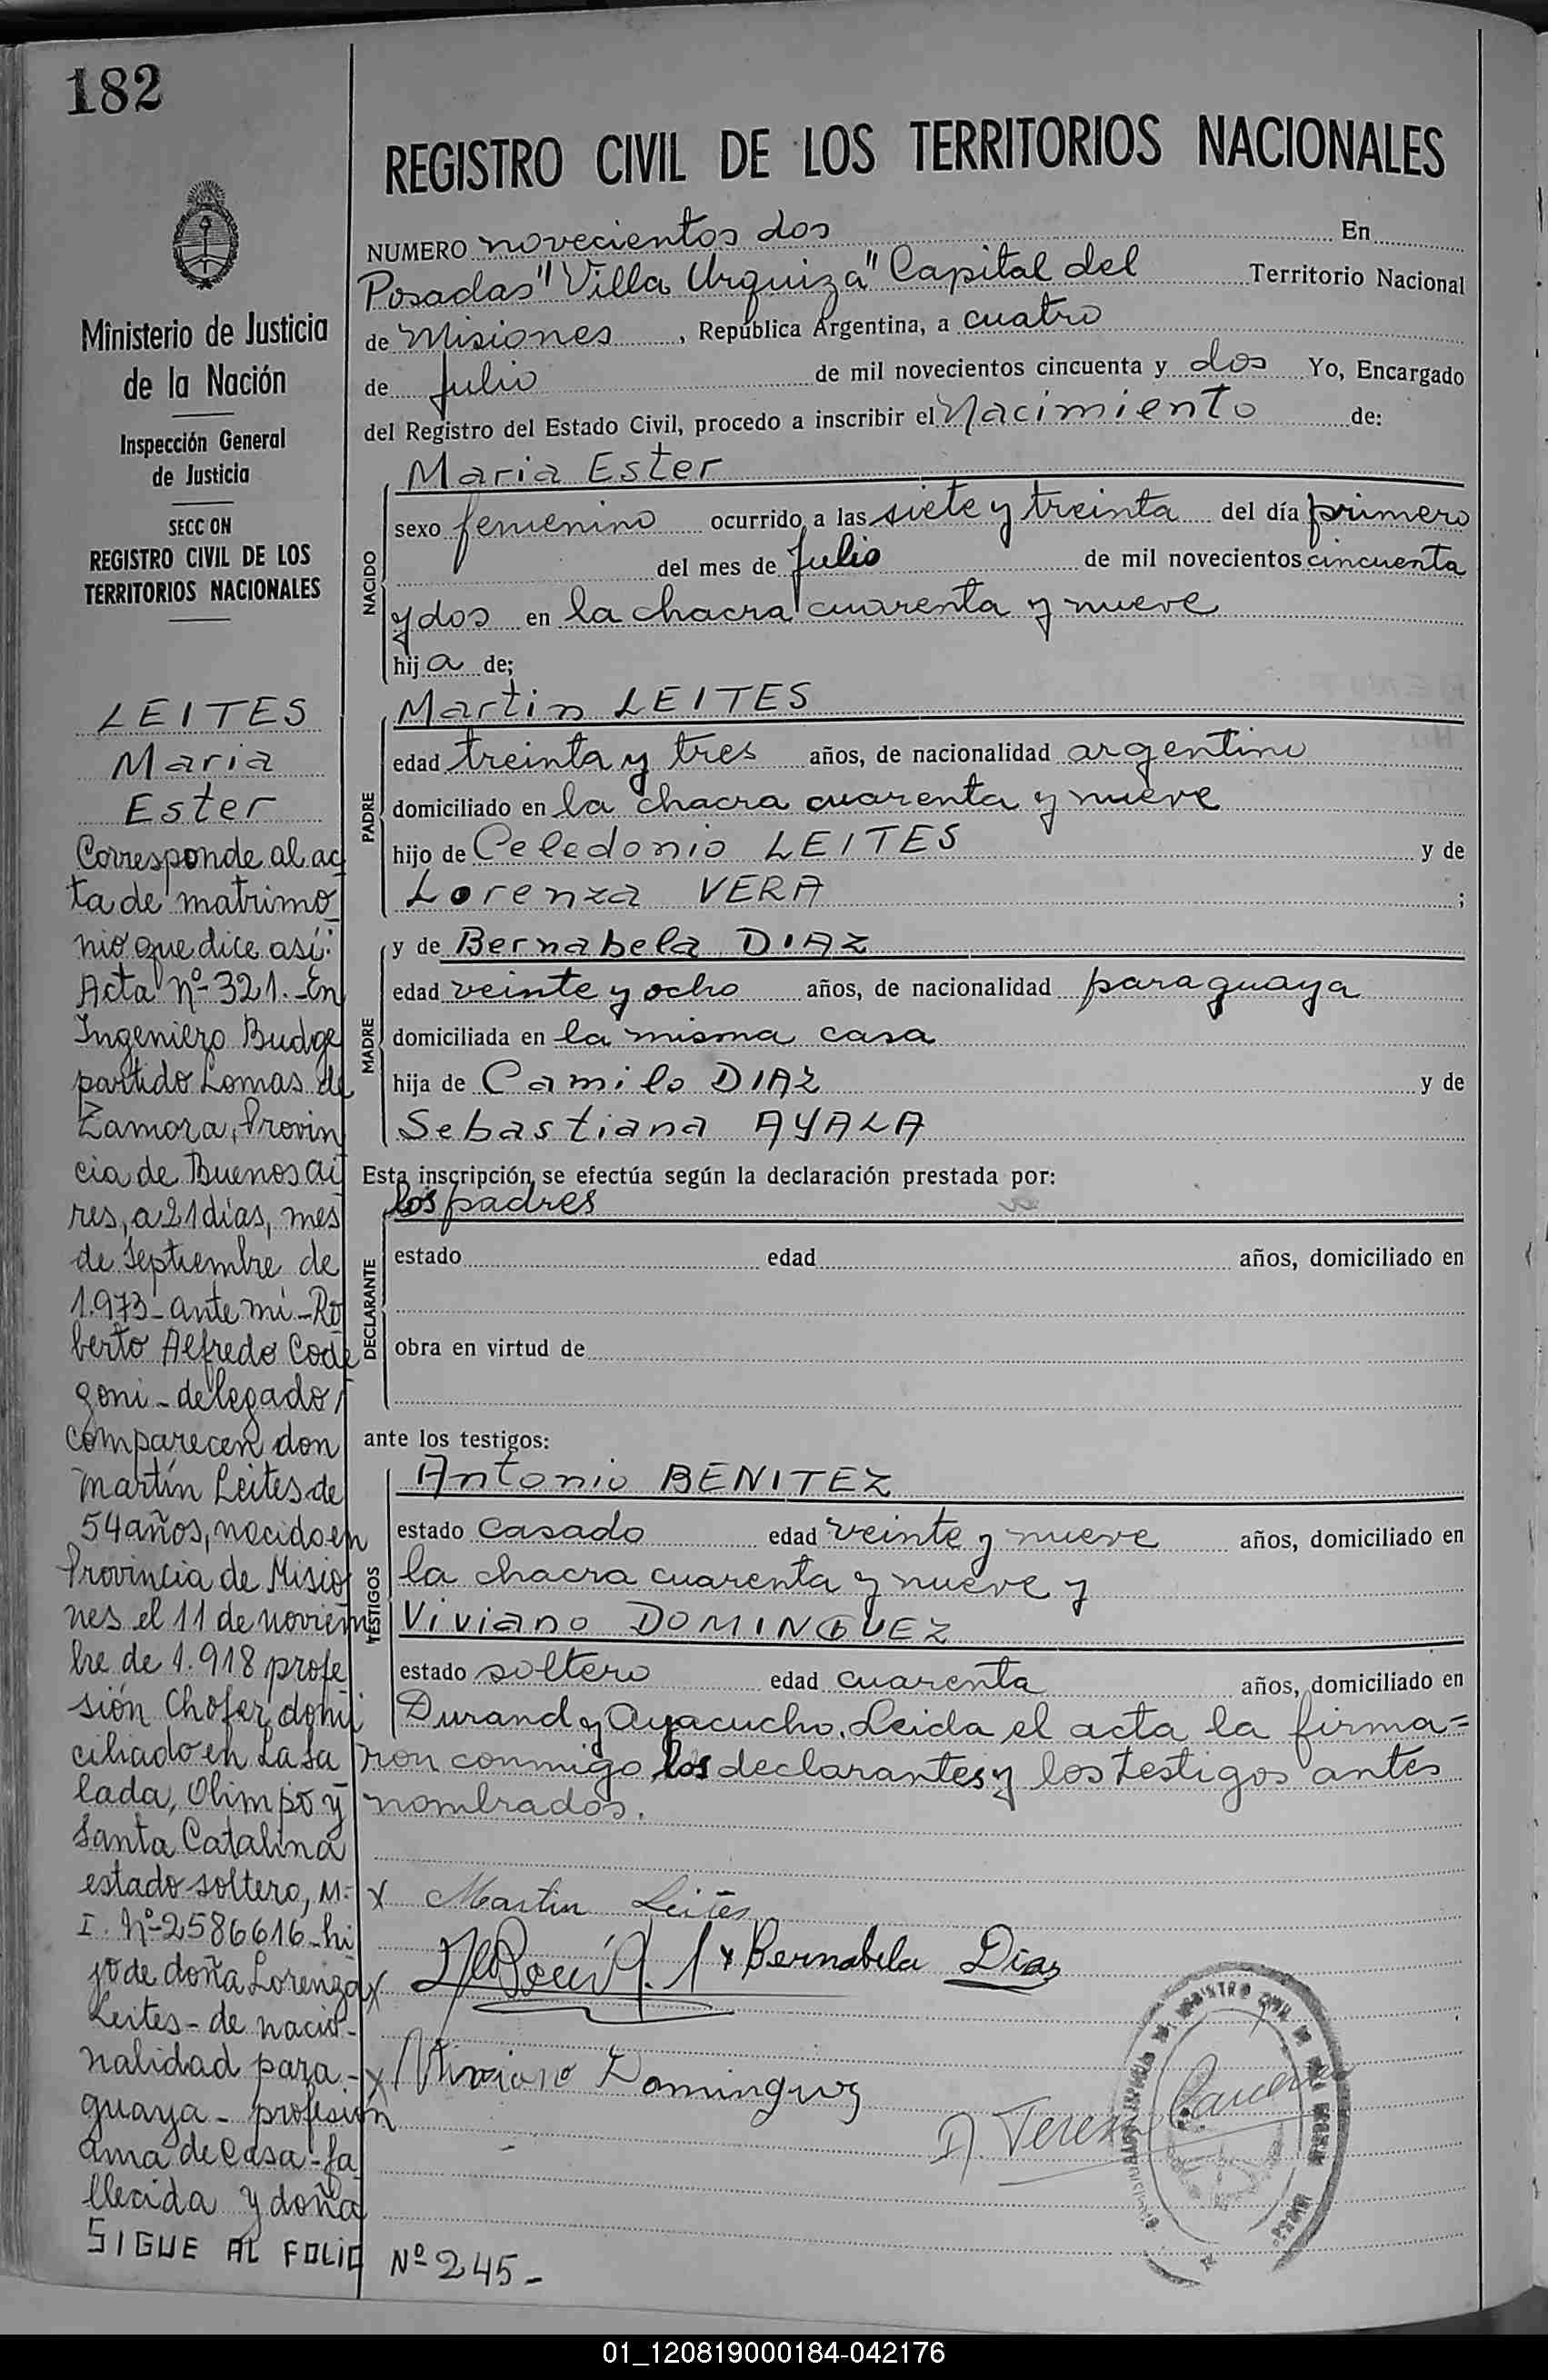 182
Ministerio de Justicia
de la Nación
Inspección General
de Justicia
SECC ON
REGISTRO CIVIL DE LOS
TERRITORIOS NACIONALES
LEITES
Maria
Ester
Corresponde al ac
ta de matrimo
nio que dice así:
Acta Nº 321.-En
Ingeniero Budge
partido Lomas de
Zamora, Provin
cia de Buenos Ai
res, a 21 días, mes
de Septiembre de
1.973- ante mí - Ro
berto Alfredo Code
goni - delegado,
comparecen don
Martín Leites de
54 años, nacido en
Provincia de Misio
nes el 11 de noviem
bre de 1.918 profe
sión Chofer, domi
ciliado en La Sa
lada, Olimpo y
Santa Catalina
estado soltero, M.
I. Nº 2586616 - hi
jo de doña Lorenza
Leites - de nacio-
nalidad para-
guaya - profesión
ama de casa - fa
llecida y doña
SIGUE AL FOLIO Nº 245-
REGISTRO CIVIL DE LOS TERRITORIOS NACIONALES
NUMERO novecientos dos En
Posadas "Villa Urquiza" Capital del Territorio Nacional
de Misiones, República Argentina, a cuatro
de Julio de mil novecientos cincuenta y dos Yo, Encargado
del Registro del Estado Civil, procedo a inscribir el Nacimiento de:
NACIDO
Maria Ester
sexo femenino ocurrido a las siete y treinta del día primero
del mes de Julio de mil novecientos cincuenta
y dos en la chacra cuarenta y nueve
hija de;
PADRE
Martin LEITES
edad treinta y tres años, de nacionalidad argentino
domiciliado en la chacra cuarenta y nueve
hijo de Celedonio LEITES y de
Lorenza VERA ;
MADRE
y de Bernabela DIAZ
edad veinte y ocho años, de nacionalidad paraguaya
domiciliada en la misma casa
hija de Camilo DIAZ y de
Sebastiana AYALA
Esta inscripción se efectúa según la declaración prestada por:
DECLARANTE
los padres
estado edad años, domiciliado en
obra en virtud de
ante los testigos:
TESTIGOS
Antonio BENITEZ
estado casado edad veinte y nueve años, domiciliado en
la chacra cuarenta y nueve y
Viviano DOMINGUEZ
estado soltero edad cuarenta años, domiciliado en
Durand y Ayacucho. Leida el acta la firma=
ron conmigo los declarantes y los testigos antes
nombrados.
x Martin Leites
x Bernabela Diaz
x Viviano Dominguez
01_120819000184-042176